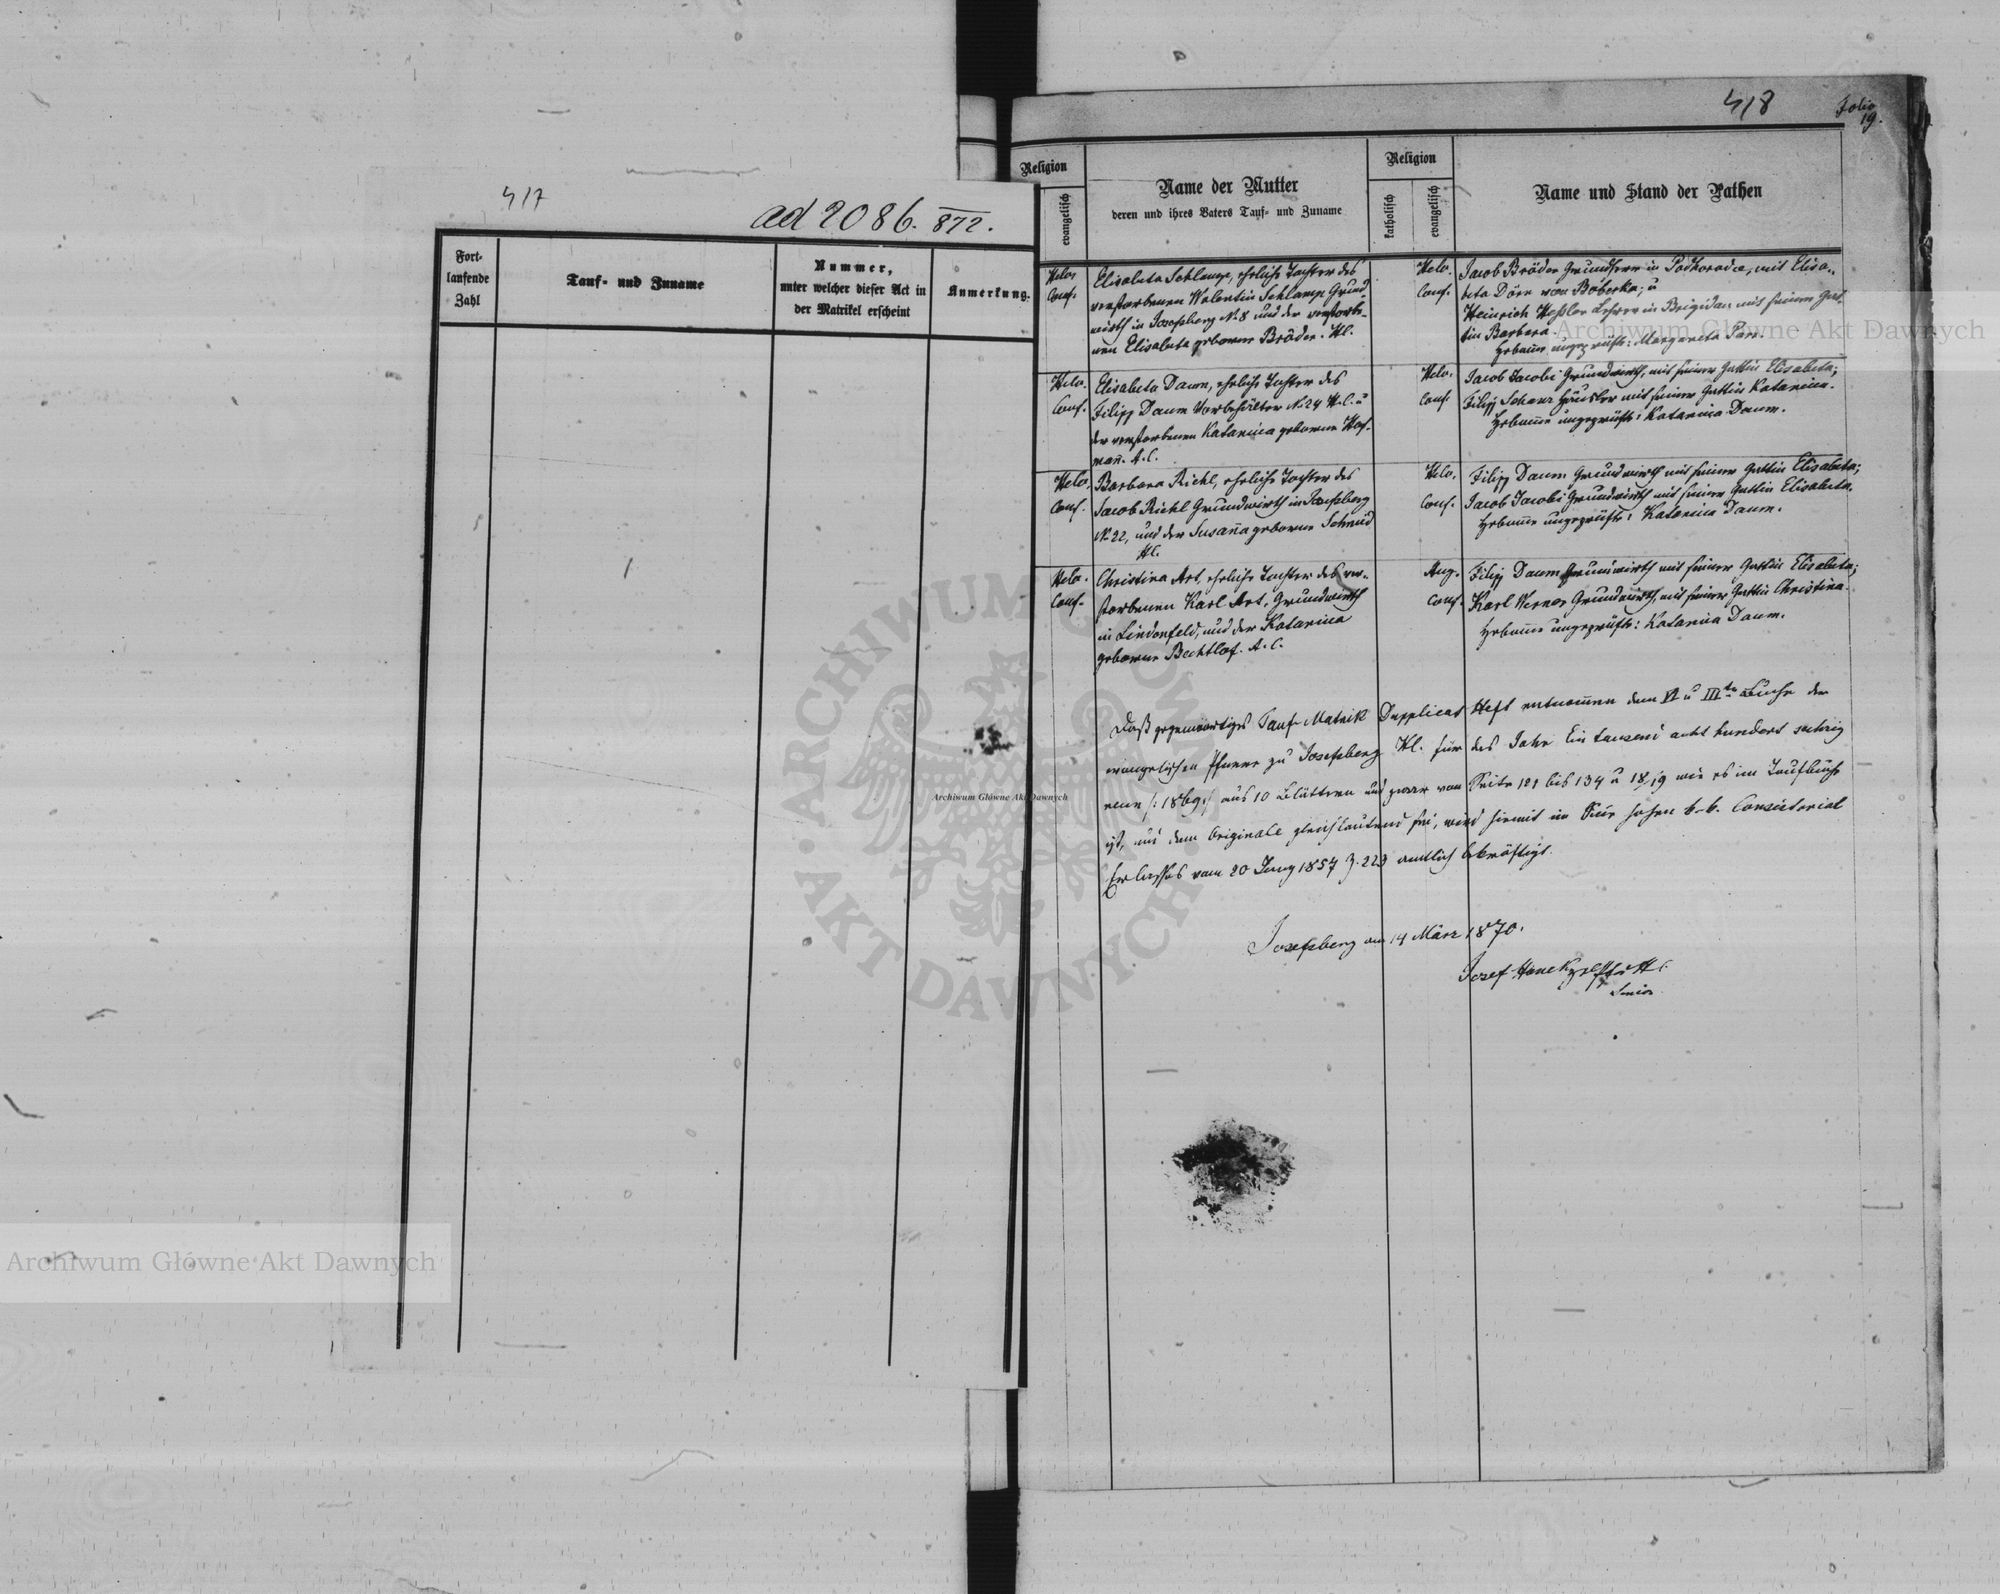 417
ad 2086. 872.
Fort-
laufende
Zahl
Tauf- und Zuname
Nummer,
unter welcher dieser Act in
der Matrikel erscheint
Anmerkung.
418
Folio
19.
Religion
evangelisch
Name der Mutter
deren und ihres Vaters Tauf- und Zuname
Religion
katholisch
evangelisch
Name und Stand der Pathen
Helv.
Conf.
Elisabeta Schlamp, ehrliche Tochter des
verstorbenen Walentin Schlamp Grund
wirth in Josefsberg No 8 und der verstorbe-
nen Elisabeta geborene Bröder. H.C.
Helv.
Conf.
Jacob Bröder Grundherr in Podhorodce, mit Elisa-
beta Dörr von Boberka; u
Heinrich Heßler Lehrer in Brigidau mit seiner Gat-
tin Barbara.
Hebame ungeprüfte: Margareta Parr.
Helv.
Conf.
Elisabeta Daum, ehrliche Tochter des
Filipp Daum Vorbehälter No 24 H.C. u
der verstorbenen Katarina geborene Hof-
mañ. A.C.
Helv.
Conf.
Jacob Jacobi Grundwirth, mit seiner Gattin Elisabeta;
Filipp Schanz Häusler mit seiner Gattin Katarina.
Hebame ungeprüfte: Katarina Daum.
Helv.
Conf.
Barbara Richl, ehrliche Tochter des
Jacob Richl Grundwirth in Josefsberg
No 22, und der Susaña geborene Schmid
H.C.
Helv.
Conf.
Filipp Daum Grundwirth mit seiner Gattin Elisabeta;
Jacob Jacobi Grundwirth mit seiner Gattin Elisabeta.
Hebame ungeprüfte: Katarina Daum.
Helv.
Conf.
Christina Art, ehrliche Tochter des ver-
storbenen Karl Art, Grundwirth
in Lindenfeld, und der Katarina
geborene Bechtlof. A.C.
Aug.
Conf.
Filipp Daum Grundwirth mit seiner Gattin Elisabeta;
Karl Werner Grundwirth, mit seiner Gattin Christina.
Hebame ungeprüfte: Katarina Daum.
Daß gegenwärtiges Tauf-Matrik Dupplicat Heft entnomen dem VI u III te Buche der
evangelischen Pfarre zu Josefsberg H.C. für das Jahr Ein tausend acht hundert sechzig
neun /:1869:/ aus 10 Blättern und zwar von Seite 121 bis 134 u 18/19 wie es im Taufbuche
ist, mit dem Originale gleichlautend sei, wird hiermit im Sinne hohen k.k. Consistorial
Erlasses vom 20 Juny 1857 Z. 223 amtlich bekräftigt.
Josefsberg am 14 März 1870.
Josef Hönel
Senior
ARCHIWUM GŁÓWNE AKT DAWNYCH
Archiwum Główne Akt Dawnych
Archiwum Główne Akt Dawnych
Archiwum Główne Akt Dawnych